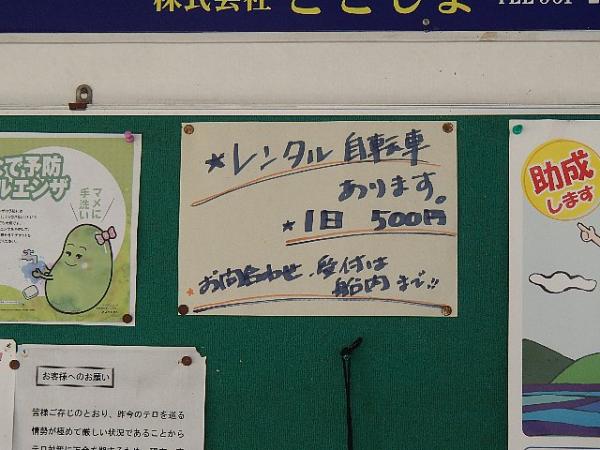 株式会社
で予防
ルエンザ
マメに
手洗い
★レンタル 自転車
あります。
★1日 500円
お問合わせ、受付は
船内 まで!!
助成
します
お客様へのお願い
皆様ご存じのとおり、昨今のテロを巡る
情勢が極めて厳しい状況であることから